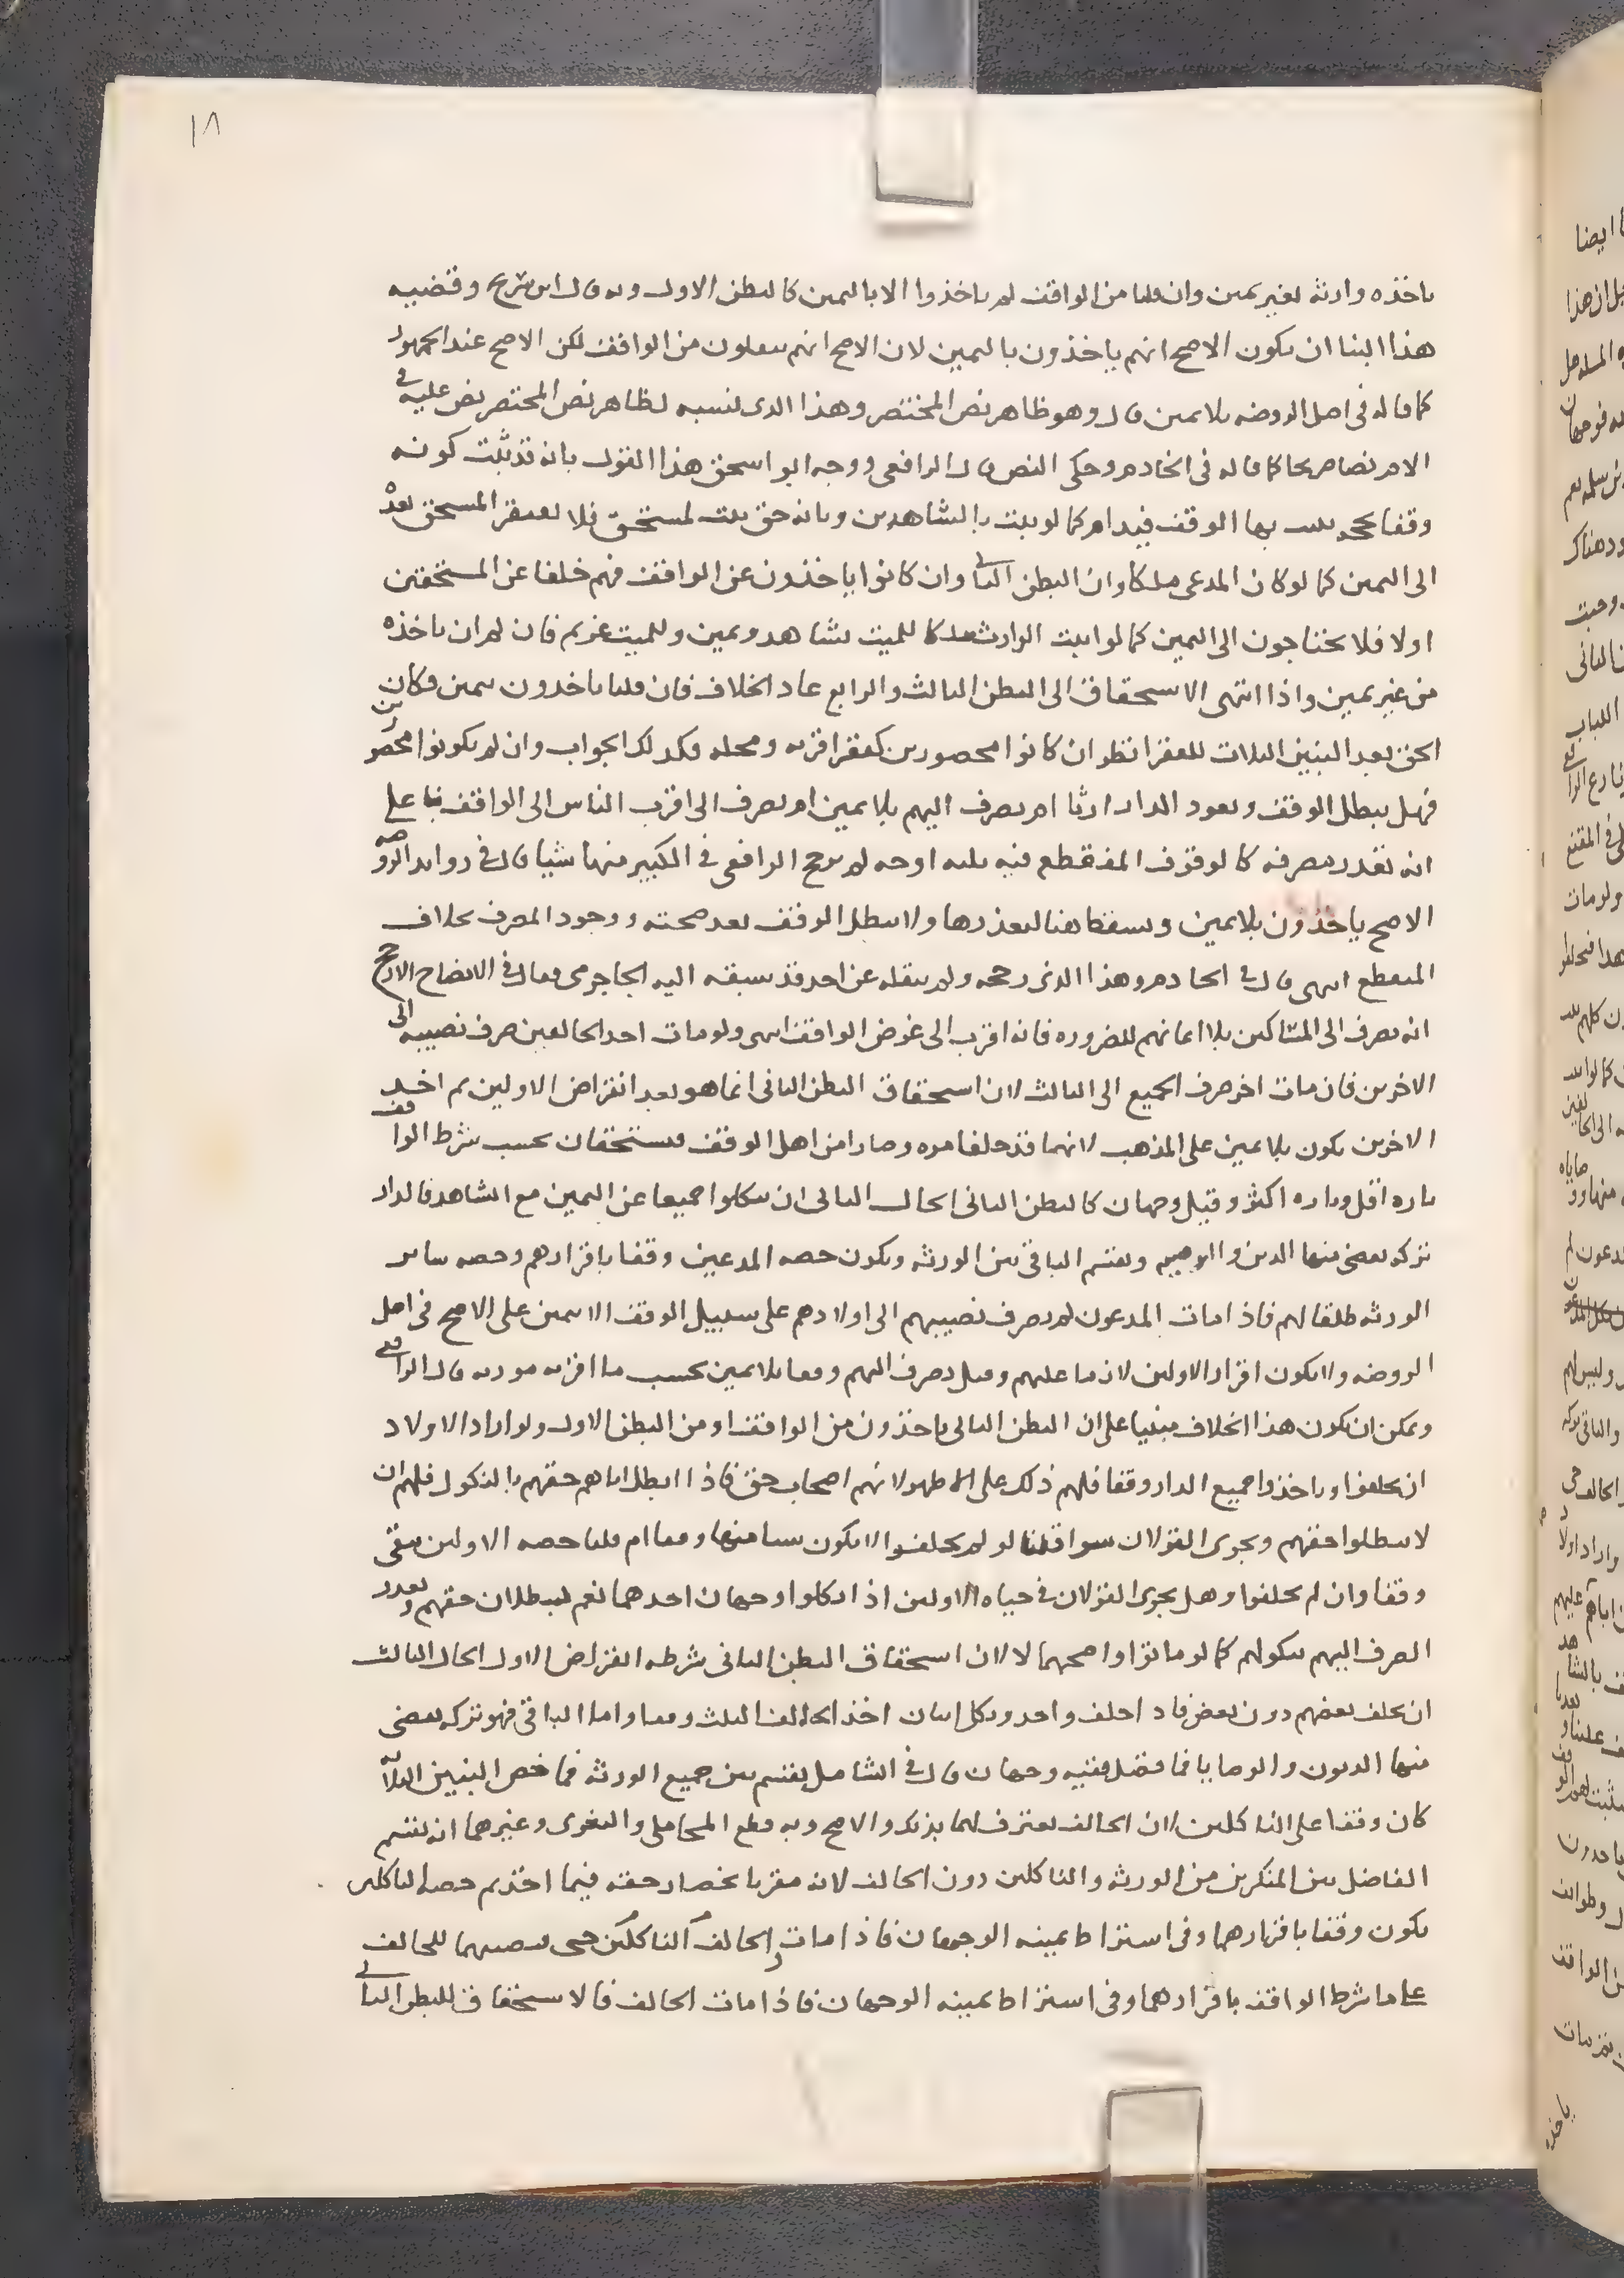 ١٨
ياخذه وارثه بغير يمين وان قلنا من الواقف لم ياخذوا الا باليمين كالبطن الاول وبه قال ابن سريج وقضيه
هذا البنا ان يكون الاصح انهم ياخذون باليمين لان الاصح انهم يتلقون من الواقف لكن الاصح عند الجمهور
كما قاله في اصل الروضه بلا يمين قال وهو ظاهر نص المختصر وهذا الذي نسبه لظاهر نص المختصر نص عليه في
الام نصا صريحا كما قاله في الخادم وحكى النص قال الرافعي ووجه ابو اسحق هذا القول بانه قد ثبت كونه
وقفا بحجه يثبت بها الوقف فيدام كما لو ثبت بالشاهدين وبانه حق ثبت لمستحق فلا يفتقر المستحق بعده
الى اليمين كما لو كان المدعى ملكا وان البطن الثاني وان كانوا ياخذون عن الواقف فهم خلفا عن المستحقين
اولا فلا يحتاجون الى اليمين كما لو اثبت الوارث ملكا للميت بشاهد ويمين وللميت غريم فان له ان ياخذه
من غير يمين واذا انتهى الاستحقاق الى البطن الثالث والرابع عاد الخلاف فان قلنا ياخذون بيمين وكان
الحق بعد البنين الثلاث للفقرا نظر ان كانوا محصورين كفقرا قريه ومحله فكذلك الجواب وان لم يكونوا محصورين
فهل يبطل الوقف وتعود الدار ارثا ام تصرف اليهم بلا يمين ام تصرف الى اقرب الناس الى الواقف بنا على
انه تعذر مصرفه كالوقف المنقطع فيه ثلثه اوجه لم يرجح الرافعي في الكبير منها شيا قال في زوايد الروضه
الاصح ياخذون بلا يمين وتسقط هنا لتعذرها ولا يبطل الوقف بعد صحته ووجود المصرف بخلاف
المنقطع انتهى قال في الخادم وهذا الذي رجحه ولم ينقله عن احد قد سبقه اليه الجاجرمي فقال في الايضاح الارجح
انه يصرف الى المساكين بلا ايمانهم للضروره فانه اقرب الى غرض الواقف انتهى ولو مات احد الحالفين صرف نصيبه الى
الاخرين فان مات اخر صرف الجميع الى الثالث لان استحقاق البطن الثاني انما هو بعد انقراض الاولين ثم اخذ
الاخرين يكون بلا يمين على المذهب لانهما قد حلفا مره وصارا من اهل الوقف فيستحقان بحسب شرط الواقف
تاره اقل وتاره اكثر وقيل وجهان كالبطن الثاني الحال الثاني ان ينكلوا جميعا عن اليمين مع الشاهد فالدار
تركه يقضى منها الدين والوصيه ويقسم الباقي بين الورثه ويكون حصه المدعين وقفا باقرارهم وحصه ساير
الورثه طلقا لهم فاذا مات المدعون لم يصرف نصيبهم الى اولادهم على سبيل الوقف الا بيمين على الاصح في اصل
الروضه ولا يكون اقرار الاولين لازما عليهم وقيل يصرف اليهم وقفا بلا يمين بحسب ما اقر به مورثه قال الرافعي
ويمكن ان يكون هذا الخلاف مبنيا على ان البطن الثاني ياخذون من الواقف او من البطن الاول ولو اراد الاولاد
ان يحلفوا وياخذوا جميع الدار وقفا فلهم ذلك على الاظهر لانهم اصحاب حق فاذا ابطل اباهم حقهم بالنكول فلهم ان
لا يبطلوا حقهم ويجرى القولان سوا قلنا لو لم يحلفوا لا يكون شيا منها وقفا ام قلنا حصه الاولين تبقى
وقفا وان لم يحلفوا وهل يجرى القولان في حياه الاولين اذا نكلوا وجهان احدهما نعم لبطلان حقهم وتعذر
الصرف اليهم بنكولهم كما لو ماتوا واصحهما لا لان استحقاق البطن الثاني شرطه انقراض الاول الحال الثالث
ان يحلف بعضهم دون بعض فاذا حلف واحد ونكل اثنان اخذ الحالف الثلث وقفا واما الباقي فهو تركه يقضى
منها الديون والوصايا فما فضل ففيه وجهان قال في الشامل يقسم بين جميع الورثه فما خص البنين الثلاثه
كان وقفا على الناكلين لان الحالف يعترف لهما بذلك والاصح وبه قطع المحاملي والبغوى وغيرهما انه يقسم
الفاضل بين المنكرين من الورثه والناكلين دون الحالف لانه مقر بانحصار حقه فيما اخذ ثم حصه الناكلين
يكون وقفا باقرارهما وفى اشتراط يمينه الوجهان فاذا مات الحالف الناكلين حى نصيبهما للحالف
على ما شرط الواقف باقرارهما وفى اشتراط يمينه الوجهان فاذا مات الحالف فالاستحقاق للبطن الثاني